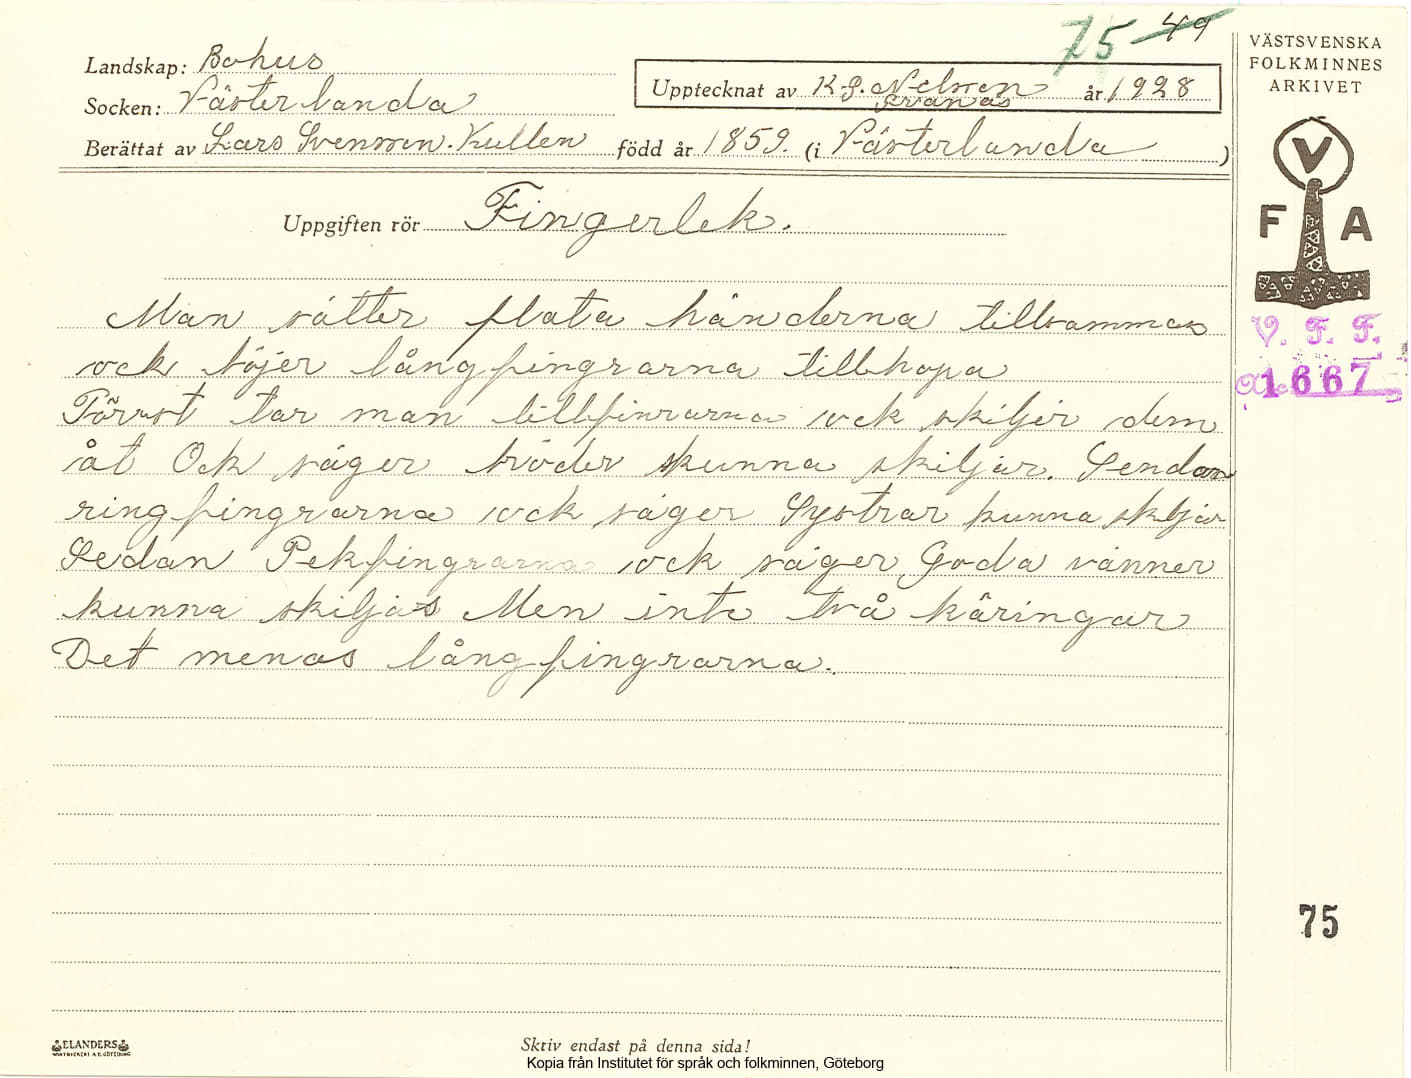 75 49
Landskap: Bohus
Socken: Västerlanda
Upptecknat av K.P. Nelsson år 1928
Svanås
Berättat av Lars Svensson. Kullen född år 1859. (i Västerlanda)
Uppgiften rör Fingerlek.
Man sätter flata händerna tillsammas
ock böjer långfingrarna tillhopa
Först tar man lillfinrarna ock skiljer dem
åt Ock säger bröder kunna skiljas. Sendan
ringfingrarna ock säger Systrar kunna skiljas
Sedan Pekfingrarna ock säger Goda vänner
kunna skiljas Men inte två käringar
Det menas långfingrarna.
VÄSTSVENSKA
FOLKMINNES
ARKIVET
V
F A
V. F. F.
Acc 1667
75
ELANDERS
Skriv endast på denna sida!
Kopia från Institutet för språk och folkminnen, Göteborg